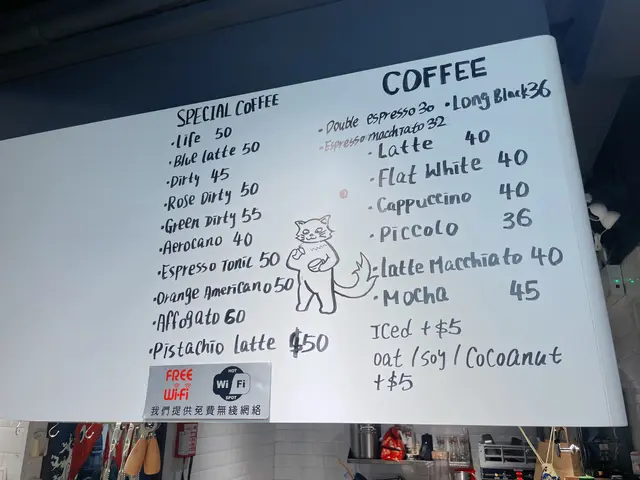 SPECIAL COFFEE
•Life 50
•Blue latte 50
•Dirty 45
•Rose Dirty 50
•Green Dirty 55
•Aerocano 40
•Espresso Tonic 50
•Orange Americano 50
•Affogato 60
•Pistachio latte $50
COFFEE
•Double espresso 30 •Long Black 36
•Espresso macchiato 32
•Latte 40
•Flat White 40
•Cappuccino 40
•Piccolo 36
•Latte Macchiato 40
•Mocha 45
Iced +$5
oat/soy/Cocoanut
+$5
FREE
Wi-Fi
HOT
Wi Fi
SPOT
我們提供免費無綫網絡